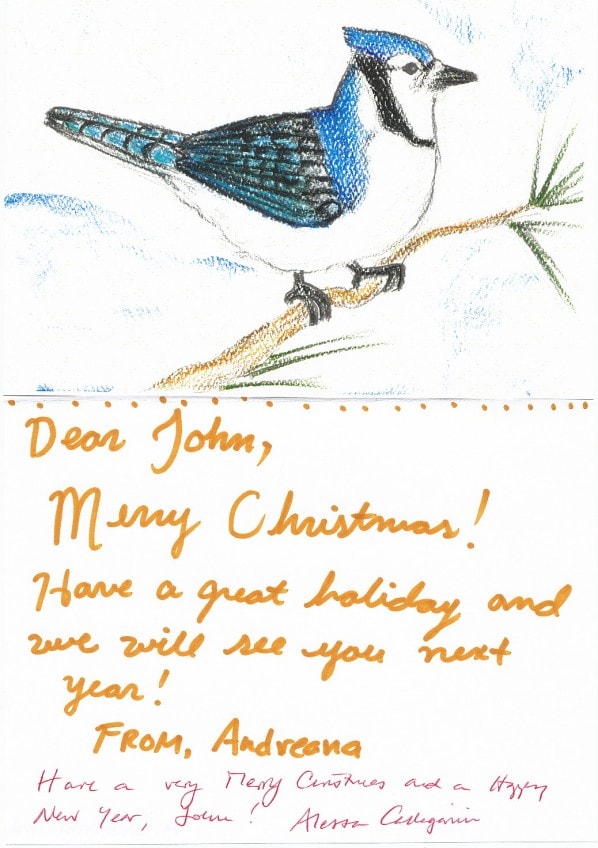 Dear John,
Merry Christmas!
Have a great holiday and
we will see you next
year!
FROM, Andreana
Have a very Merry Christmas and a Happy
New Year, John! Alessa